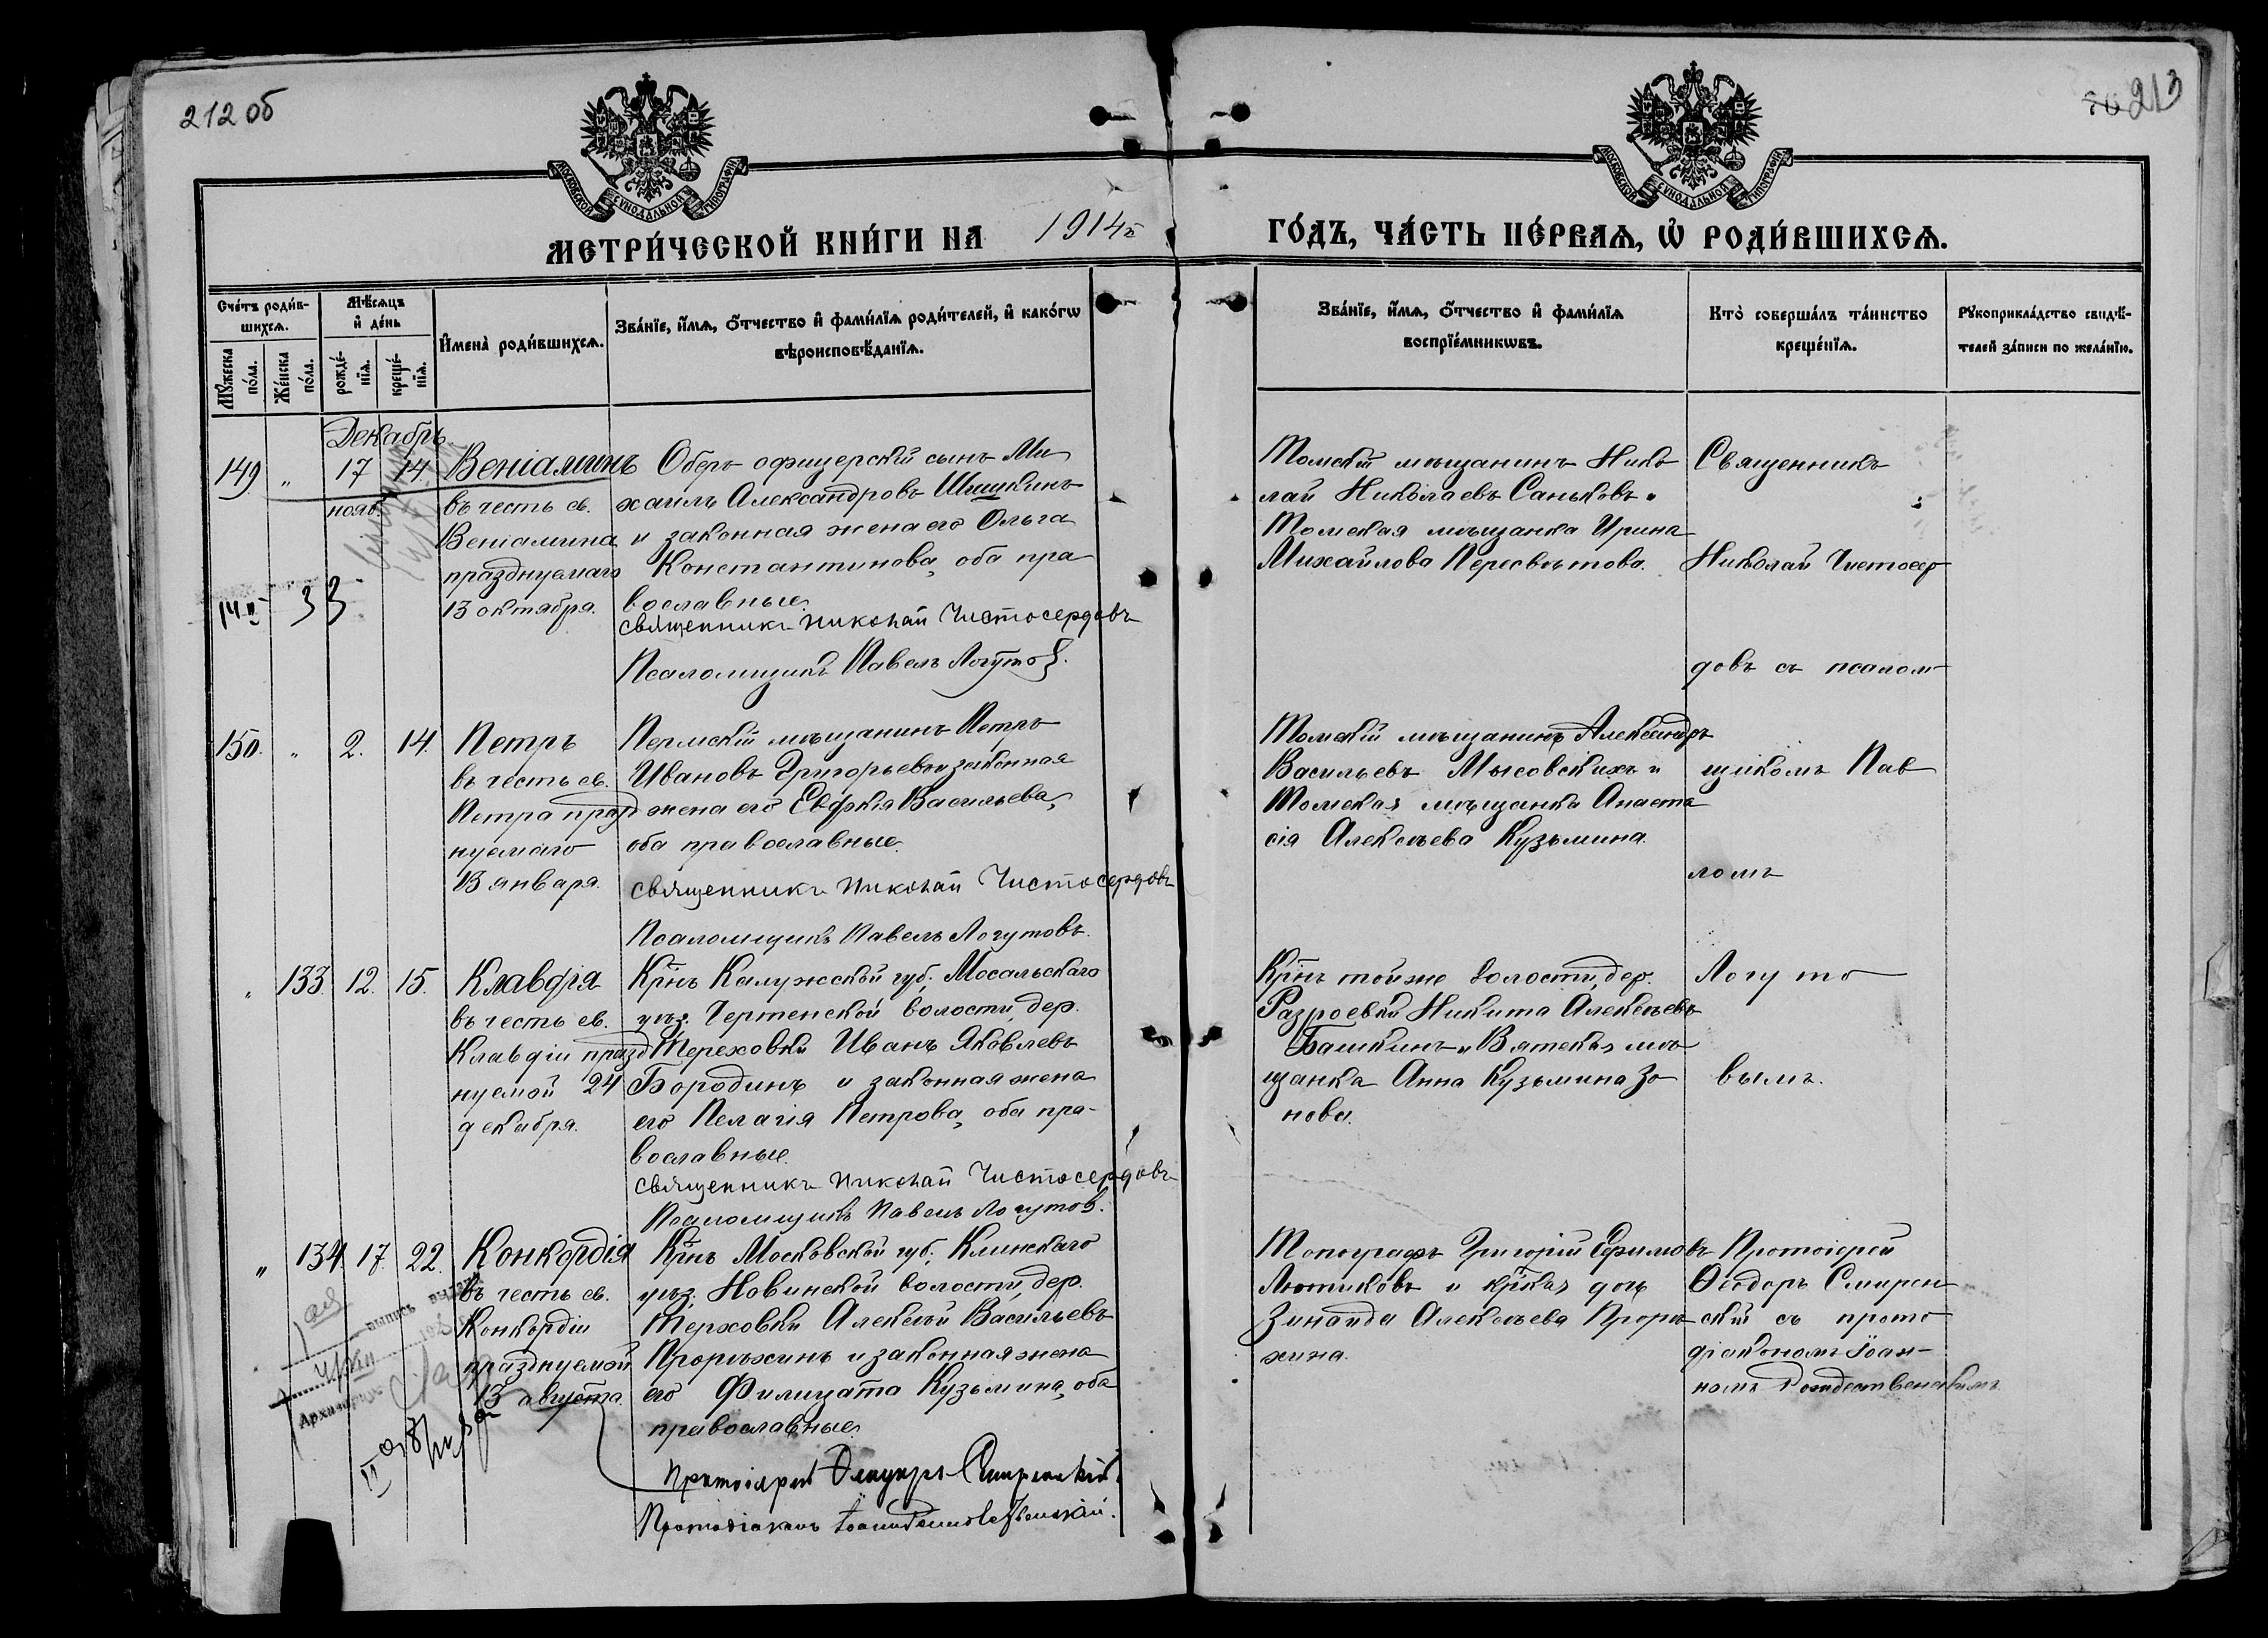 212 об
213
МОСКОВСКОЙ СѴНОДАЛЬНОЙ ТИПОГРАФІИ
МОСКОВСКОЙ СѴНОДАЛЬНОЙ ТИПОГРАФІИ
МЕТРИ́ЧЕСКОЙ КНИ́ГИ НА 1914й ГО́ДЪ, ЧА́СТЬ ПЕ́РВАѦ, Ѡ҆ РОДИ́ВШИХСѦ.
Сче́тъ роди́в-
шихсѧ.
Мꙋ́жеска
по́ла.
Же́нска
по́ла.
Мѣ́сѧцъ
и҆ де́нь
рожде́-
нїѧ.
креще́-
нїѧ.
И҆мена̀ роди́вшихсѧ.
Зва́нїе, и҆́мѧ, ѻ҆́тчество и҆ фами́лїѧ роди́телей, и҆ како́гѡ
вѣроисповѣ́данїѧ.
Зва́нїе, и҆́мѧ, ѻ҆́тчество и҆ фами́лїѧ
воспрїе́мникѡвъ.
Кто̀ соверша́лъ та́инство
креще́нїѧ.
Рꙋкоприкла́дство свидѣ́-
телей за́писи по жела́нїю.
Декабрь
149. " 17 14. Веніаминъ
нояб.
въ честь св.
Веніамина
празднуемаго
13 октября.
Оберъ офицерскій сынъ Ми
хаилъ Александровъ Шишкинъ
и законная жена его Ольга
Константинова, оба пра
вославные.
священникъ Николай Чистосердовъ
Псаломщикъ Павелъ Логутов.
Томскій мѣщанинъ Нико
лай Николаевъ Саньковъ.
Томская мѣщанка Ирина
Михайлова Пересвѣтова.
Священникъ
Николай Чистосер
довъ съ псалом
33
150. " 2. 14. Петръ
въ честь св.
Петра празд
нуемаго
13 января.
Пермскій мѣщанинъ Петръ
Ивановъ Григорьевъ и законная
жена его Евфкія Васильева,
оба православные.
священникъ Николай Чистосердовъ
Псаломщикъ Павелъ Логутовъ.
Томскій мѣщанинъ Александръ
Васильевъ Мысовскихъ и
Томская мѣщанка Анаста
сія Алексѣева Кузьмина.
щикомъ Пав
ломъ
" 133. 12. 15. Клавдія
въ честь св.
Клавдіи празд
нуемой 24
декабря.
Кр͠нъ Калужской губ., Мосальскаго
уѣз. Чертенской волости, дер.
Тереховки Иванъ Яковлевъ
Бородинъ и законная жена
его Пелагія Петрова, оба пра-
вославные.
священникъ Николай Чистосердовъ
Псаломщикъ Павелъ Логутов.
Кр͠нъ той же волости, дер.
Никита Алексѣевъ
Башкинъ и Вятская мѣ
щанка Анна Кузьмина Зо
нова.
Логуто
вымъ.
" 134. 17. 22. Конкордія
въ честь св.
Конкордіи
празднуемой
13 августа.
Кр͠нъ Московской губ., Клинскаго
уѣз. Новинской волости, дер.
Терховки Алексѣй Васильевъ
Прорѣхинъ и законная жена
его Филицата Кузьмина, оба
православные.
Протоіерей Ѳеодоръ Смиренскій.
Протодіаконъ Іоаннъ Рождественскій.
Топографъ Григорій Ефимовъ
Лютиковъ и кр͠ская дочь
Зинаида Алексѣева Прорѣ
хина.
Протоіерей
Ѳеодоръ Смирен
скій съ прото
діакономъ Іоан-
номъ Рождественскимъ.